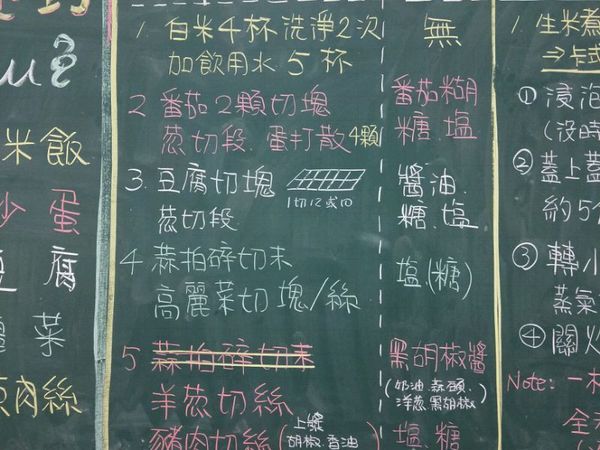 米飯
蛋
腐
菜
肉絲
1. 白米4杯洗淨2次
加飲用水5杯
2 番茄2顆切塊
蔥切段.蛋打散4顆
3. 豆腐切塊
1切12或10
蔥切段
4 蒜拍碎切末
高麗菜切塊/絲
5 蒜拍碎切末
洋蔥切絲
豬肉切絲(上漿
胡椒.香油)
無
番茄糊
糖.塩
醬油.
糖.塩
塩.(糖)
黑胡椒醬
(奶油.蒜頭.
洋蔥.黑胡椒)
塩.糖
1. 生米煮
→卡式
① 浸泡
(沒時
② 蓋上蓋
約5分
③ 轉小
蒸氣
④ 關火
Note: 一杯